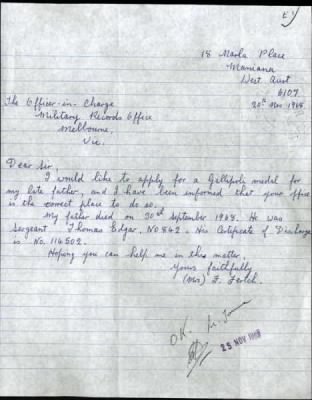 18 Marla Place
Maniana
West Aust
6107
20th Nov. 1968
The Officer-in-Charge
Military Records Office
Melbourne,
Vic.
Dear Sir,
I would like to apply for a Gillipoli medal for
my late father, and I have been informed that your office
is the correct place to do so.
My father died on 30th September 1968. He was
Sergeant Thomas Edgar, No 842. His Certificate of Discharge
is No. 116502.
Hoping you can help me in this matter,
Yours faithfully
(Mrs) F.
OK
25 NOV 1968